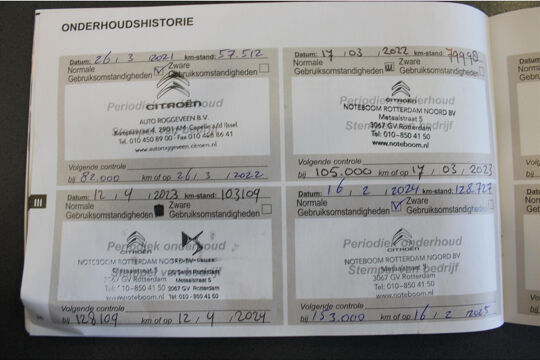 ONDERHOUDSHISTORIE
Datum: 26, 3, 2021 km-stand: 57.512
Normale Gebruiksomstandigheden Zware Gebruiksomstandigheden
Periodiek onderhoud
CITROËN
AUTO ROGGEVEEN B.V.
2901 AM Capelle a/d IJssel
Tel. 010 450 89 00 Fax 010 446 86 41
www.autoroggeveen.citroen.nl
Volgende controle
bij 82.000 km of op 26, 3, 2022
Datum: 17, 03, 2022 km-stand: 79998
Normale Gebruiksomstandigheden Zware Gebruiksomstandigheden
Periodiek onderhoud
CITROËN
NOTEBOOM ROTTERDAM NOORD BV
Metaalstraat 5
3067 GV Rotterdam
Tel: 010-850 41 50
www.noteboom.nl
Volgende controle
bij 105.000 km of op 17, 03, 2023
III
Datum: 12, 4, 2023 km-stand: 103109
Normale Gebruiksomstandigheden Zware Gebruiksomstandigheden
Periodiek onderhoud
CITROËN DS
NOTEBOOM ROTTERDAM NOORD BV
Metaalstraat 5
3067 GV Rotterdam
Tel: 010-850 41 50
www.noteboom.nl
Metaalstraat 5
3067 GV Rotterdam
Tel: 010-850 41 50
Volgende controle
bij 128109 km of op 12, 4, 2024
Datum: 16, 2, 2024 km-stand: 128.727
Normale Gebruiksomstandigheden Zware Gebruiksomstandigheden
Periodiek onderhoud
CITROËN
NOTEBOOM ROTTERDAM NOORD BV
Metaalstraat 5
3067 GV Rotterdam
Tel: 010-850 41 50
www.noteboom.nl
Volgende controle
bij 153.000 km of op 16, 2, 2025